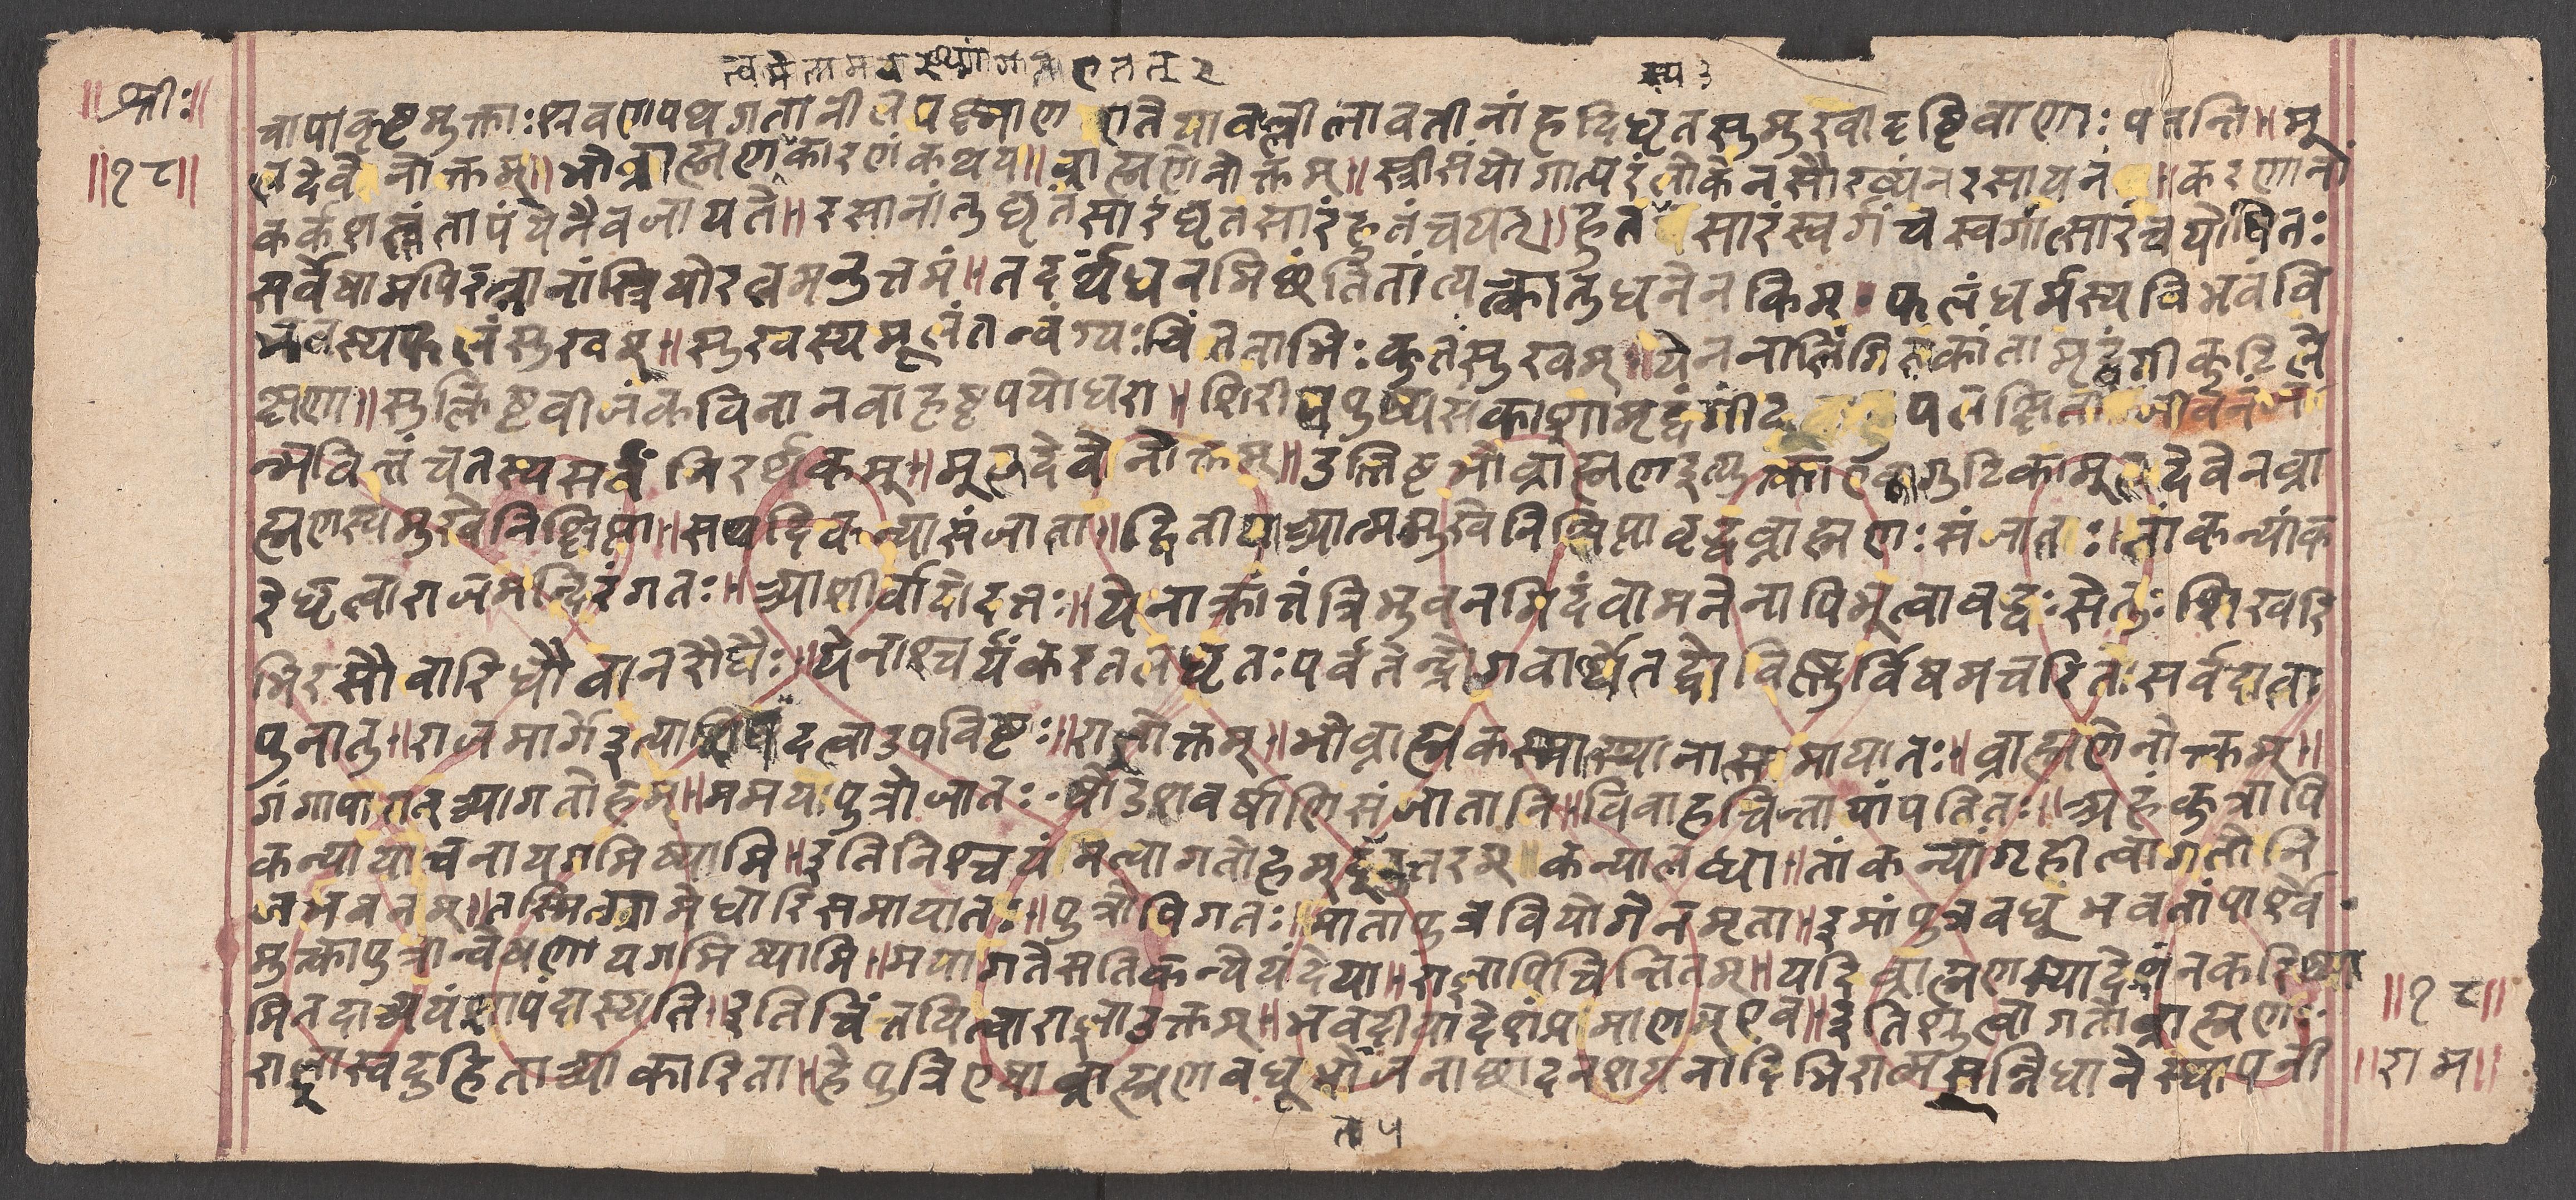 त्वमेतामवस्थांगतः एतत् २
स्य ३
॥श्रीः॥
॥१८॥
चापाकृष्टमुक्ताः श्रवणपथगतानीलपक्ष्माण एतेयावल्लीलावतीनांहृदिधृतसुमुखादृष्टिबाणाः पतन्ति॥मू
लदेवेनोक्तम्॥भोब्राह्मणकारणंकथय॥ब्राह्मणेनोक्तम्॥स्त्रीसंयोगात्परंलोकेनसौख्यंनरसायनं॥करणानां
कर्कशत्वंतापंयेनैवजायते॥रसानांतुघृतंसारंघृतसारंहुतंचयत्॥हुतसारंस्वर्गंचस्वर्गात्सारंचयोषितः
सर्वेषामपिरत्नानांस्त्रियोरत्नमनुत्तमं॥तदर्थंधनमिछंतितांत्यक्त्कातुधनेनकिम्॥फलंधर्मस्यविभवंवि
भवस्यफलंसुखम्॥सुखस्यमूलंतन्वंग्यः विनाताभिः कुतंसुखम्॥येननालिंगिताकांतामृद्वंगीकुटिले
क्षणा॥ पयोधरा॥शिरीषपुष्पसंकाशामृद्वंगी जीवनंज
न्मवित्तंचतस्यसर्वंनिरर्थकम्॥मूलदेवेनोक्तम्॥उत्तिष्टभोब्राह्मणइत्युक्त्काएकागुटिकामूलदेवेनब्रा
ह्मणस्यमुखेनिक्षिप्ता॥सद्यदिव्यकन्यासंजाता॥द्वितीयाआत्ममुखेनिक्षिप्तावृद्धब्राह्मणः संजातः॥तांकन्यांक
रेधृत्वाराजमन्दिरंगतः॥आशीर्वादोदत्तः॥येनाक्रांतंत्रिभुवनमिदंवामनेनापिभूत्वाबद्धः सेतुः शिखरि
भिरसौवारिधौवानरौघैः॥येनाश्चर्यंकरतलधृतः पर्वतेन्द्रोगवार्थेतद्वोविष्णुर्विषमचरितः सर्वदात्वा
पुनातु॥राजमार्गेइत्याशिषंदत्वाउपविष्टः॥राज्ञोक्तम्॥भोब्राह्मकस्मात्स्थानात्समायातः॥ब्राह्मणेनोक्तम्॥
गंगापारात्आगतोहम्॥ममयापुत्रोजातः षोडशवर्षाणिसंजातानि॥विवाहचिन्तायांपतितः॥अहंकुत्रापि
कन्यायाचनायगमिष्यामि॥इतिनिश्चयंमत्यागतोहम् कन्यालब्धा॥तांकन्यांगृहीत्वागतोनि
जभवनम्॥तस्मिन्ग्रामेधारिसमायातः॥पुत्रोपिगतः॥मातापुत्रवियोगेनमृता॥इमांपुत्रवधूंभवतांपार्श्वे
मुत्कापुत्रान्वेषणायगमिष्यामि॥मयागतेसतिकन्येयंदेया॥राज्ञापिचिन्तितम्॥यदिब्राह्मणस्यादेशंनकरिष्या
मितदाअयंशापंदास्यति॥इतिचिंतयित्वाराज्ञाउक्तम्॥भवदीयादेशंप्रमाणम्एव॥इतिश्रुत्वागतोब्राह्मणः
राज्ञास्वदुहिताआकारिता॥हेपुत्रिएषाब्राह्मणवधूभोजनाछादनशयनादिभिरात्मसन्निधानेस्थापनी
॥१८॥
॥राम॥
ता ५